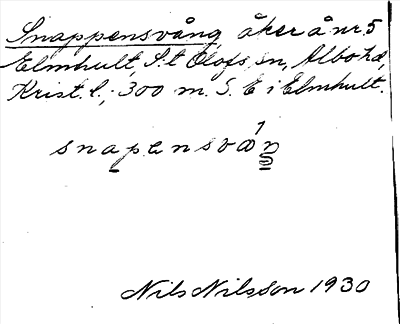 Snappensvång, åker å nr 5
Elmhult, S:t Olofs sn, Albo hd,
Krist. l.; 300 m. S. E i Elmhult.
snapensvån
Nils Nilsson 1930